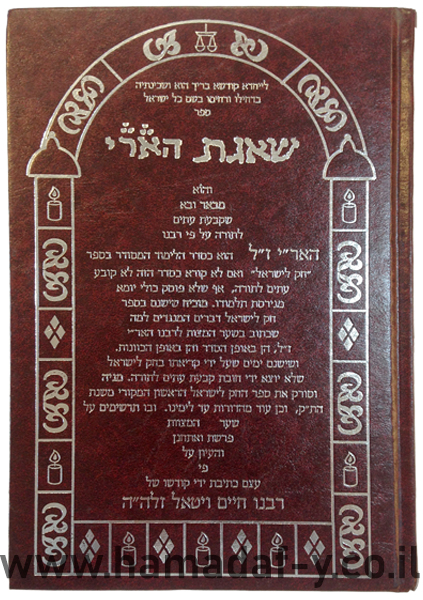 לייחדא קודשא בריך הוא ושכינתיה
בדחילו ורחימו בשם כל ישראל
ספר
שאגת הארי
והוא
מבאר ובא
שקבעת עתים
לתורה על פי רבנו
האר"י ז"ל הוא כסדר הלימוד המסודר בספר
"חק לישראל" ואם לא קורא כסדר הזה לא קובע
עתים לתורה, אף שלא פוסק כולי יומא
מגירסת תלמודו. מוכיח שישנם בספר
חק לישראל דברים המנגדים למה
שכתוב בשער המצות לרבנו האר"י
ז"ל, הן באופן הסדר והן באופן הכוונות.
ושישנם ימים שעל ידי קריאתו בחק לישראל
שלא יוצא ידי חובת קבעת עתים לתורה. מגיה
וסורק את ספר החק לישראל הראשון המקורי משנת
התק", וכן עוד מהדורות עד לימינו. ובו תרשימים על
שער המצוות
פרשת ואתחנן
והעיון על
פי
עצם כתיבת ידי קודשו של
רבנו חיים ויטאל זלה"ה
www.hamadaf-y.co.il